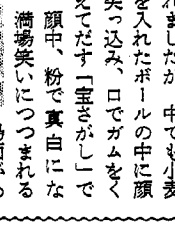 れましたが、中でも小麦
を入れたボールの中に顔
突っ込み、口でガムをく
えてだす「宝さがし」で
顔中、粉で真白にな
満場笑いにつつまれる